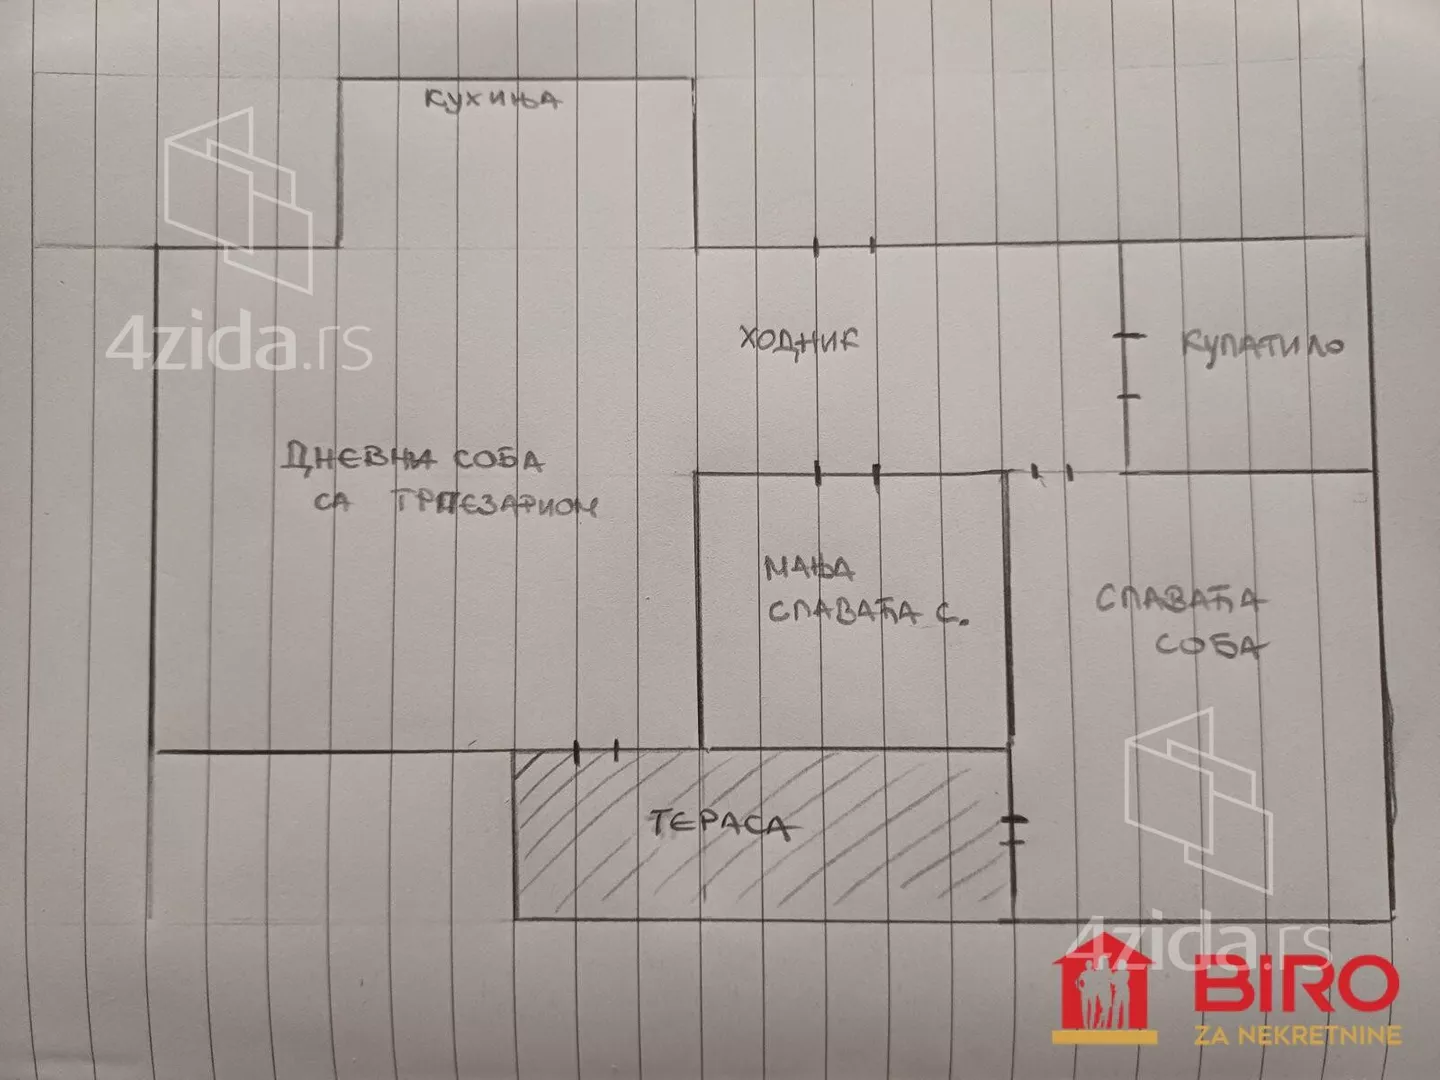 КУХИЊА
4zida.rs
ХОДНИК
КУПАТИЛО
ДНЕВНА СОБА
СА ТРПЕЗАРИОМ
МАЊА
СПАВАЋА С.
СПАВАЋА
СОБА
ТЕРАСА
4zida.rs
BIRO
ZA NEKRETNINE